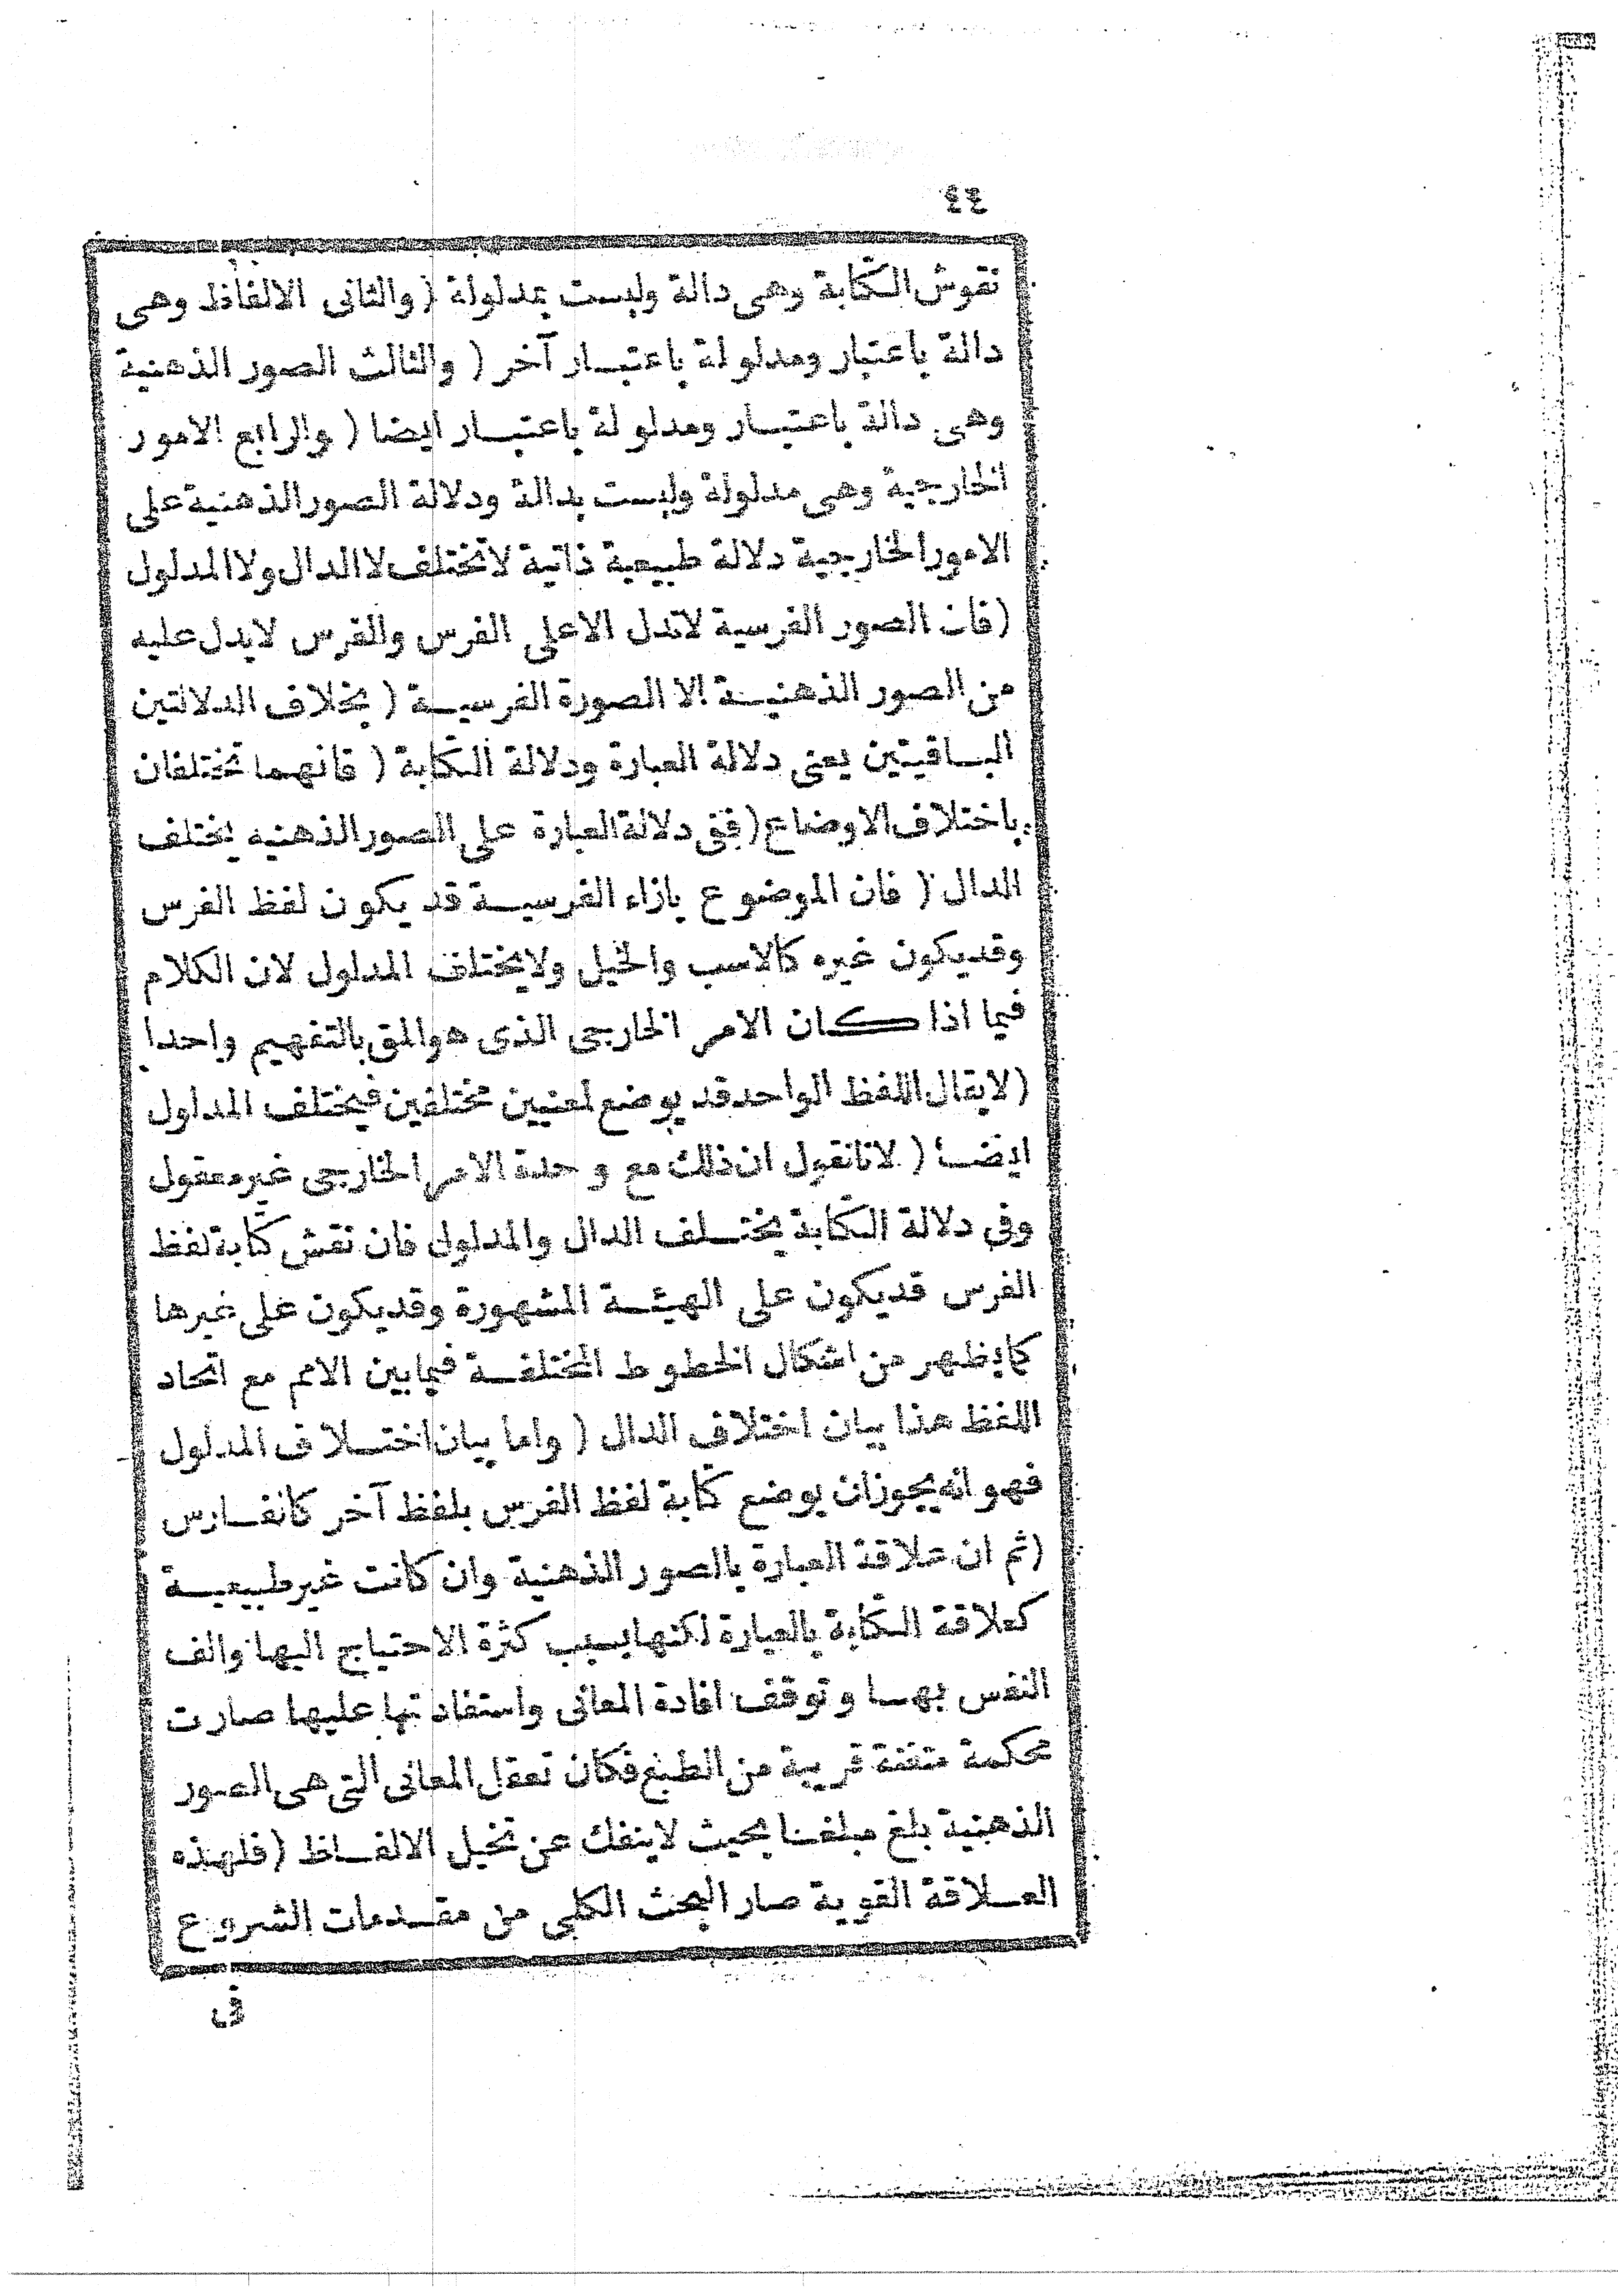 ٤٤
نقوش الكتابة وهى دالة وليست بمدلولة (والثانى الالفاظ وهى
دالة باعتبار ومدلولة باعتبار آخر (والثالث الصور الذهنية
وهى دالة باعتبار ومدلولة باعتبار ايضا (والرابع الامور
الخارجية وهى مدلولة وليست بدالة ودلالة الصور الذهنية على
الامور الخارجية دلالة طبيعية ذاتية لاتختلف لاالدال ولاالمدلول
(فان الصور الفرسية لاتدل الاعلى الفرس والفرس لايدل عليه
من الصور الذهنية الا الصورة الفرسية (بخلاف الدلالتين
الباقيتين يعنى دلالة العبارة ودلالة الكتابة (فانهما تختلفان
باختلاف الاوضاع (ففى دلالة العبارة على الصور الذهنيه يختلف
الدال (فان الموضوع بازاء الفرسية قد يكون لفظ الفرس
وقديكون غيره كالاسب والخيل ولايختلف المدلول لان الكلام
فيما اذا كان الامر الخارجى الذى هوالمق بالتفهيم واحدا
(لايقال اللفظ الواحدقد يوضع لمعنيين مختلفين فيختلف المدلول
ايضا (لانانقول ان ذلك مع وحدة الامر الخارجى غيرمعقول
وفى دلالة الكتابة يختلف الدال والمدلول فان نقش كتابة لفظ
الفرس قديكون على الهيئة المشهورة وقديكون على غيرها
كمايظهر من اشكال الخطوط المختلفة فيمابين الامم مع اتحاد
اللفظ هذا بيان اختلاف الدال (واما بيان اختلاف المدلول
فهوانه يجوزان يوضع كتابة لفظ الفرس بلفظ آخر كانفارس
(ثم ان علاقة العبارة بالصور الذهنية وان كانت غيرطبيعية
كعلاقة الكتابة بالعبارة لكنهابسبب كثرة الاحتياج اليها والف
النفس بها وتوقف افادة المعانى واستفادتها عليها صارت
محكمة متقنة قريبة من الطبع فكان تعقل المعانى التى هى الصور
الذهنية بلغ مبلغا بحيث لاينفك عن تخيل الالفاظ (فلهذه
العلاقة القوية صار البحث الكلى من مقدمات الشروع
فى